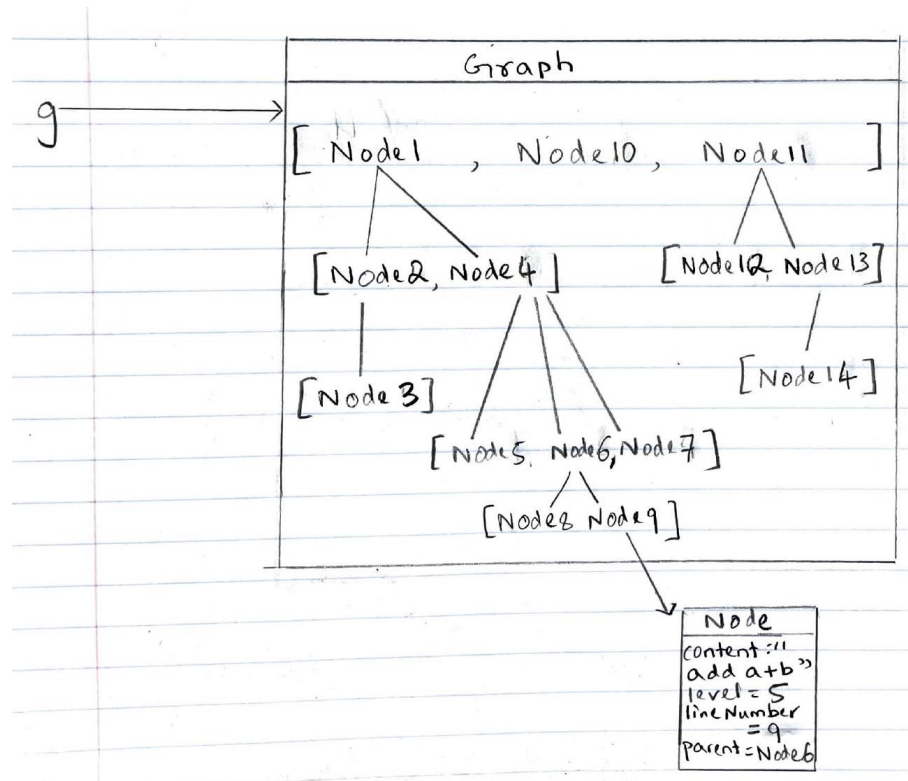 Graph
g
[ Node1 , Node10, Node11 ]
[Node2, Node4]
[Node12, Node13]
[Node 3]
[Node14]
[Node5, Node6, Node7]
[Node8 Node9]
Node
content:"
add a+b"
level = 5
lineNumber
= 9
parent=Node6